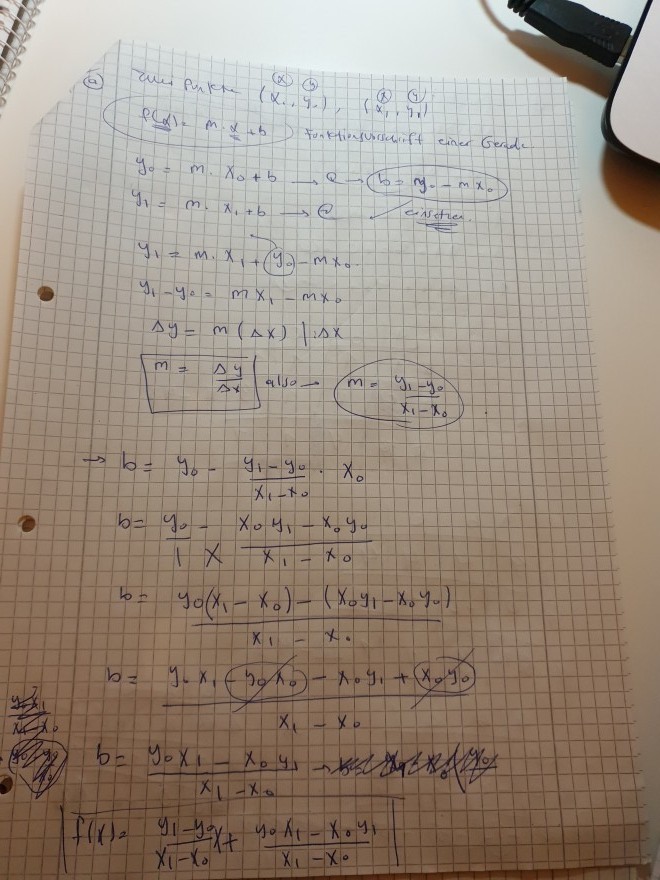 a) Zwei Punkte (x₀, y₀), (x₁, y₁)
x y x y
f(x) = m · x + b Funktionsvorschrift einer Gerade
y₀ = m · x₀ + b → → b = y₀ - m x₀
y₁ = m · x₁ + b → einsetzen.
y₁ = m · x₁ + y₀ - m x₀
y₁ - y₀ = m x₁ - m x₀
Δy = m (Δx) | :Δx
m = Δy/Δx also → m = (y₁ - y₀)/(x₁ - x₀)
→ b = y₀ - (y₁ - y₀)/(x₁ - x₀) · x₀
b = y₀/1 - (x₀ y₁ - x₀ y₀)/(x₁ - x₀)
b = (y₀(x₁ - x₀) - (x₀ y₁ - x₀ y₀))/(x₁ - x₀)
b = (y₀ x₁ - y₀ x₀ - x₀ y₁ + x₀ y₀)/(x₁ - x₀)
b = (y₀ x₁ - x₀ y₁)/(x₁ - x₀)
f(x) = (y₁ - y₀)/(x₁ - x₀) x + (y₀ x₁ - x₀ y₁)/(x₁ - x₀)